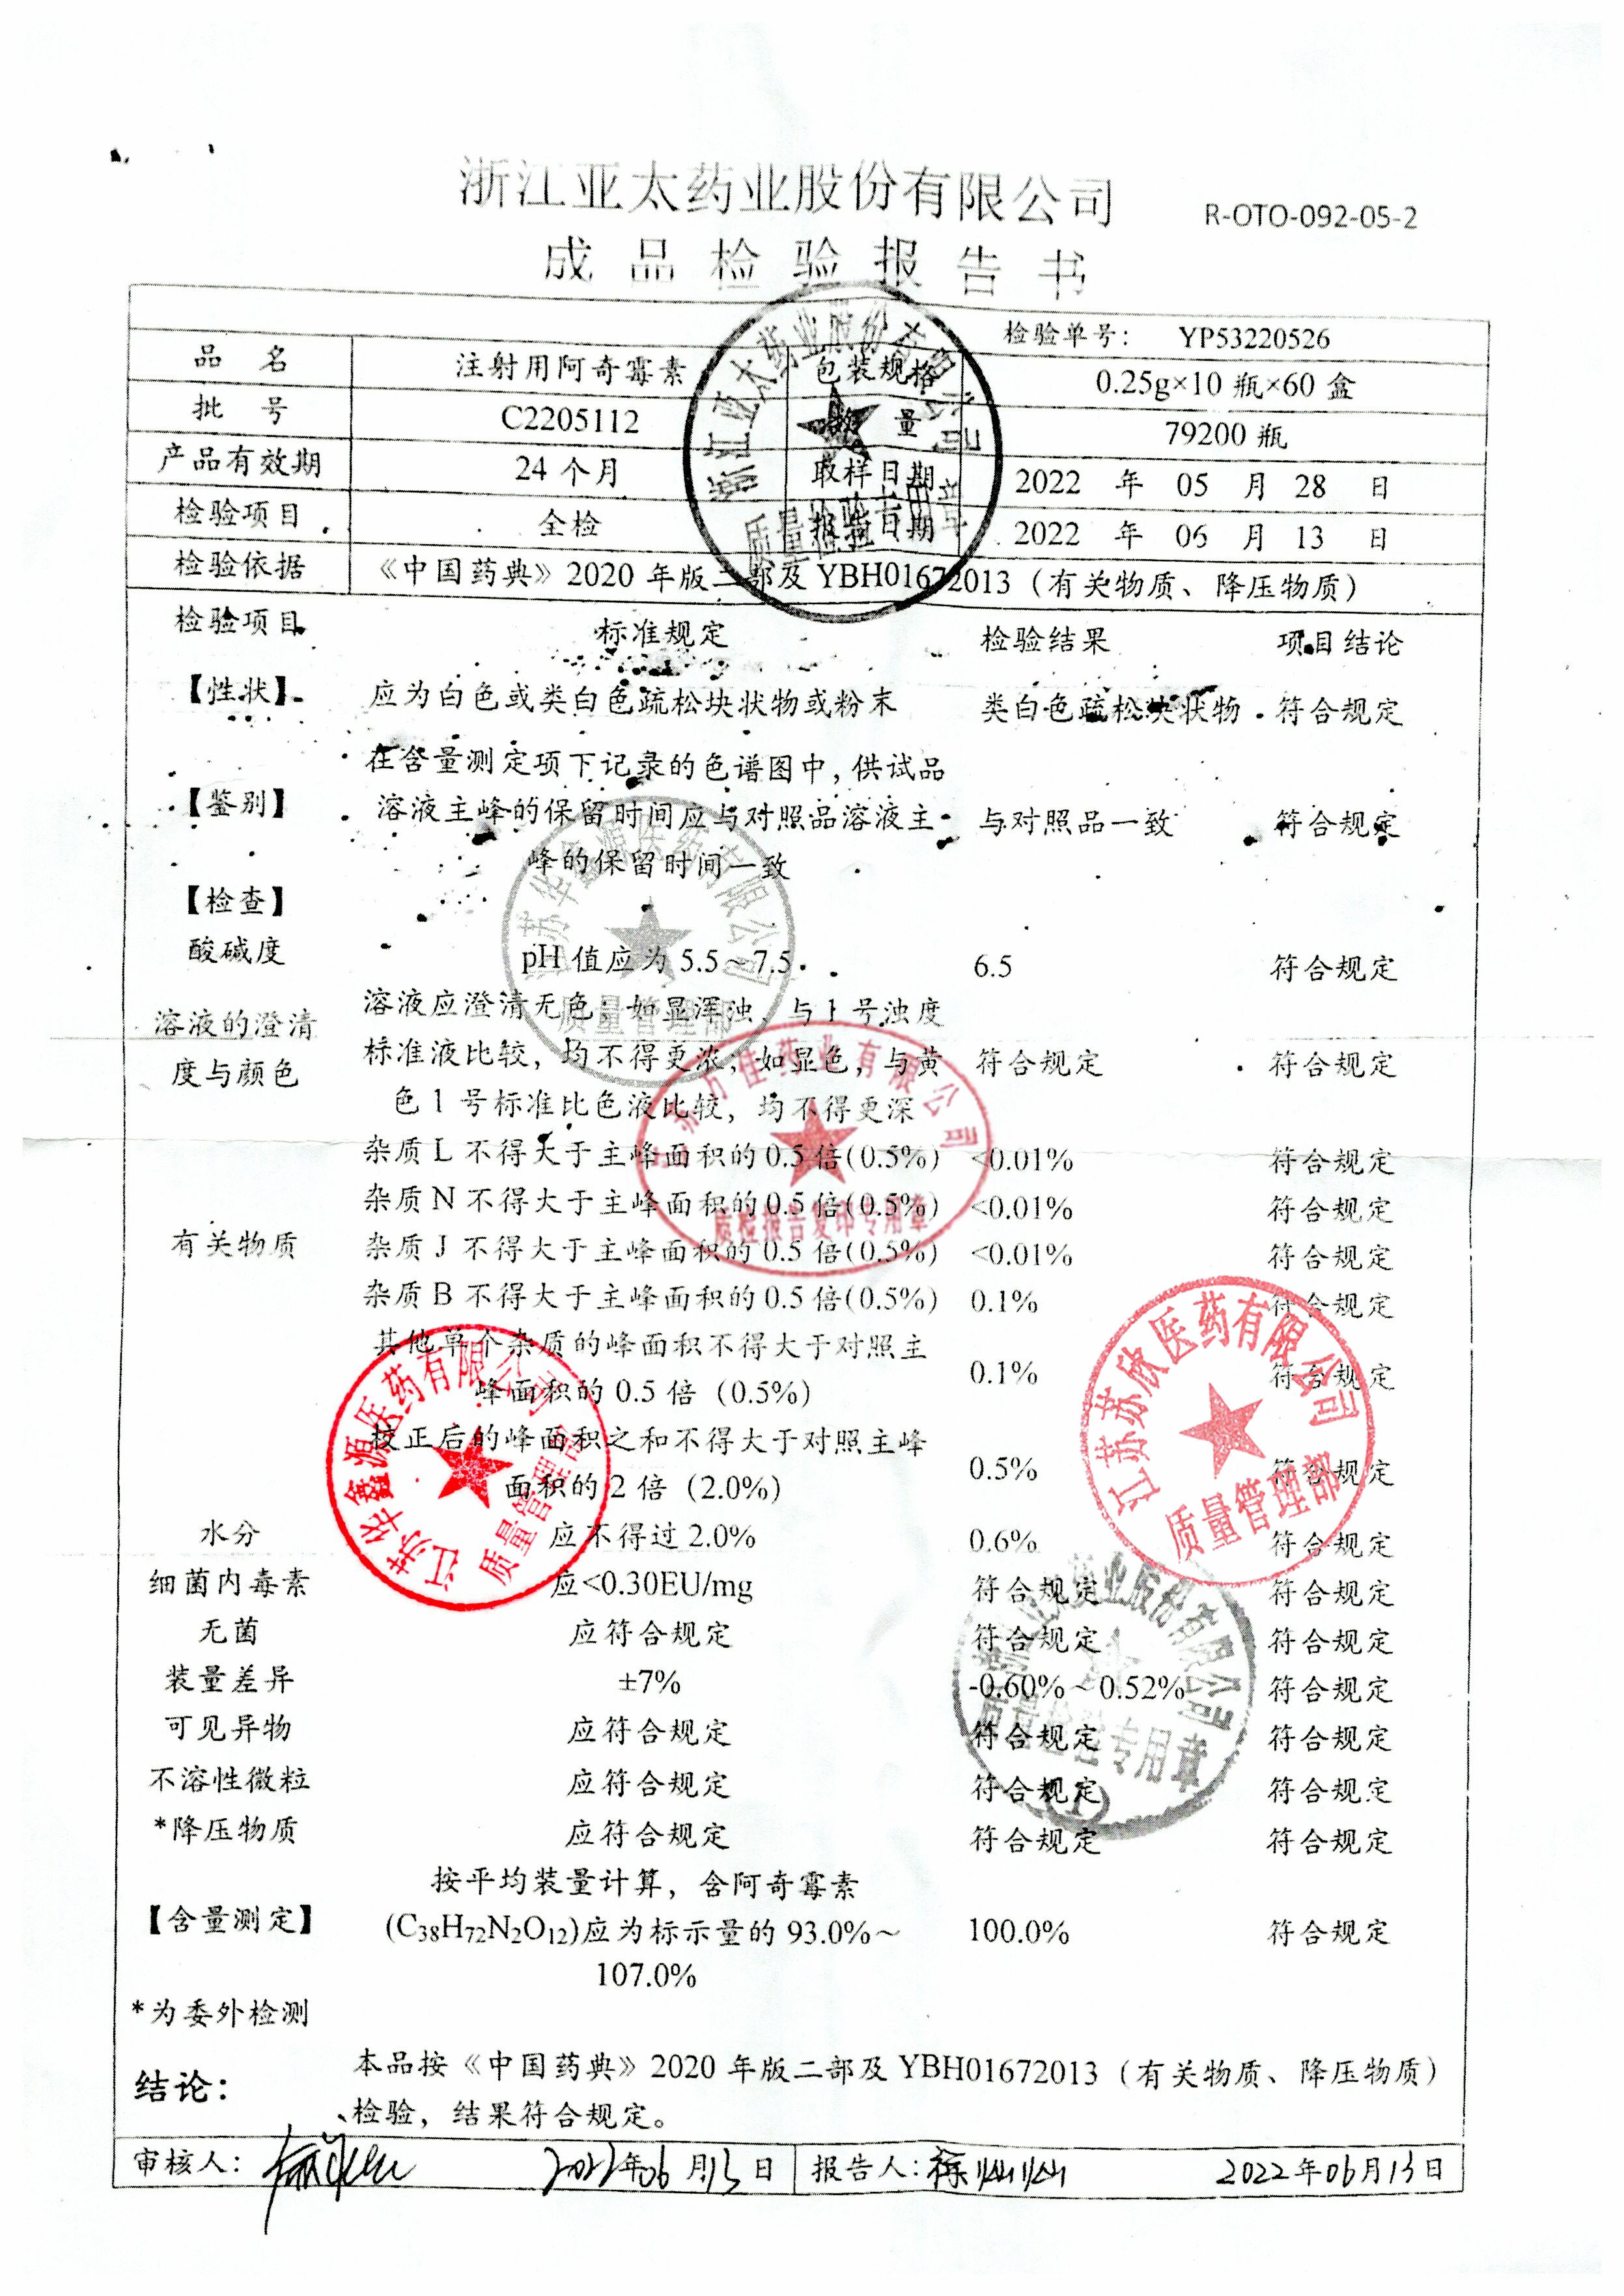 浙江亚太药业股份有限公司
R-OTO-092-05-2
成品检验报告书
检验单号： YP53220526
品 名 注射用阿奇霉素 包装规格 0.25g×10 瓶×60 盒
批 号 C2205112 数 量 79200 瓶
产品有效期 24 个月 取样日期 2022 年 05 月 28 日
检验项目 全检 报告日期 2022 年 06 月 13 日
检验依据 《中国药典》2020 年版二部及 YBH01672013（有关物质、降压物质）
检验项目 标准规定 检验结果 项目结论
【性状】 应为白色或类白色疏松块状物或粉末 类白色疏松块状物 符合规定
在含量测定项下记录的色谱图中，供试品
【鉴别】 溶液主峰的保留时间应与对照品溶液主 与对照品一致 符合规定
峰的保留时间一致
【检查】
酸碱度 pH 值应为 5.5～7.5 6.5 符合规定
溶液的澄清 溶液应澄清无色；如显浑浊，与 1 号浊度
度与颜色 标准液比较，均不得更浓；如显色，与黄 符合规定 符合规定
色 1 号标准比色液比较，均不得更深
杂质 L 不得大于主峰面积的 0.5 倍(0.5%) <0.01% 符合规定
杂质 N 不得大于主峰面积的 0.5 倍(0.5%) <0.01% 符合规定
有关物质 杂质 J 不得大于主峰面积的 0.5 倍(0.5%) <0.01% 符合规定
杂质 B 不得大于主峰面积的 0.5 倍(0.5%) 0.1% 符合规定
其他单个杂质的峰面积不得大于对照主
峰面积的 0.5 倍（0.5%） 0.1% 符合规定
校正后的峰面积之和不得大于对照主峰
面积的 2 倍（2.0%） 0.5% 符合规定
水分 应不得过 2.0% 0.6% 符合规定
细菌内毒素 应<0.30EU/mg 符合规定 符合规定
无菌 应符合规定 符合规定 符合规定
装量差异 ±7% -0.60%～0.52% 符合规定
可见异物 应符合规定 符合规定 符合规定
不溶性微粒 应符合规定 符合规定 符合规定
*降压物质 应符合规定 符合规定 符合规定
按平均装量计算，含阿奇霉素
【含量测定】 (C38H72N2O12)应为标示量的 93.0%～ 100.0% 符合规定
107.0%
*为委外检测
结论： 本品按《中国药典》2020 年版二部及 YBH01672013（有关物质、降压物质）
检验，结果符合规定。
审核人： 2022年06月13日 报告人：徐灿灿 2022年06月13日
浙江亚太药业股份有限公司
质量检验专用章
江苏华鑫源医药有限公司
质量管理部
万佳药业有限公司
质检报告复印专用章
江苏华鑫源医药有限公司
质量管理部
江苏苏欣医药有限公司
质量管理部
浙江亚太药业股份有限公司
质量检验专用章
①